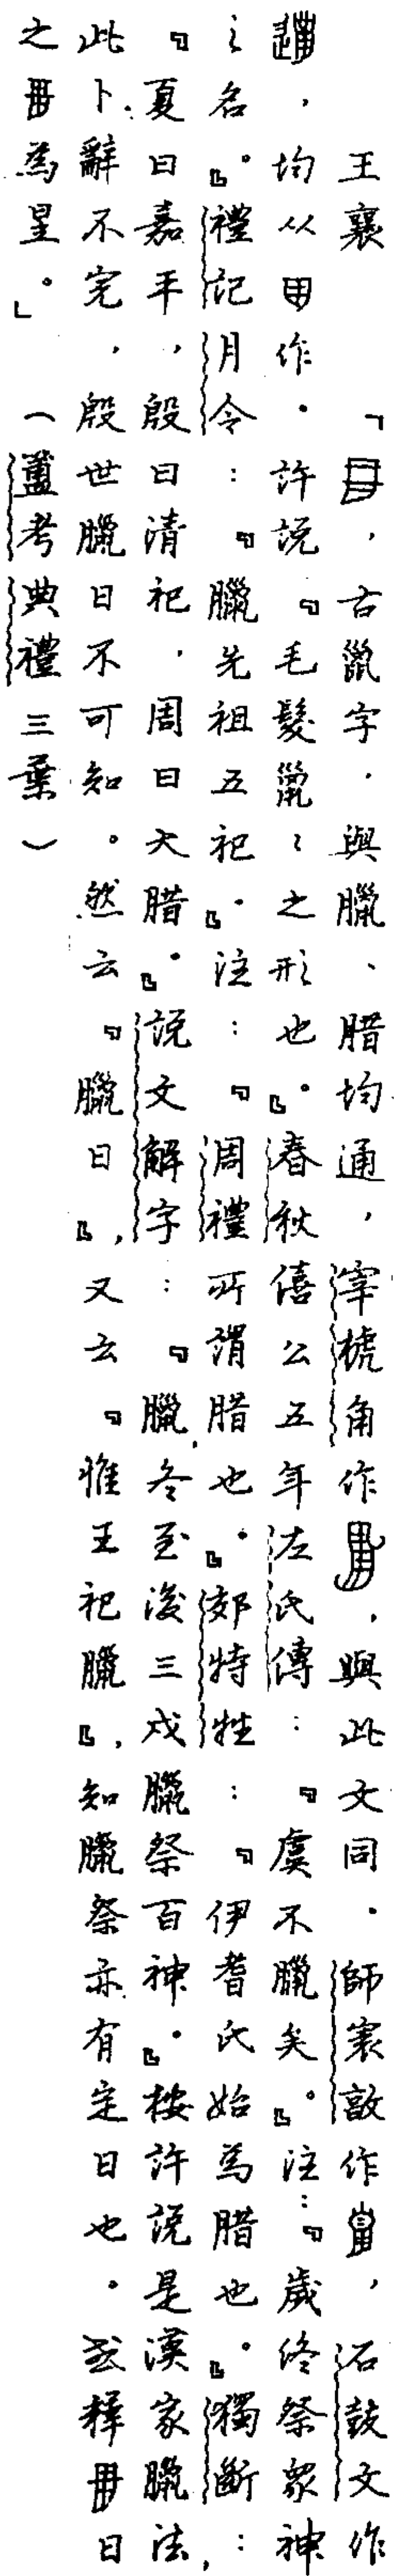 王襄　「，古鼠字，與臘、腊均通，宰椃角作，與此文同。師寰敦作，石鼓文作
，均从作。許說『毛髮鼠〻之形也』。春秋僖公五年左氏傳：『虞不臘矣』。注：『歲終祭眾神
之名』。禮記月令：『臘先祖五祀』。注：『周禮所謂腊也』。郊特牲：『伊耆氏始為腊也』。獨斷：
『夏曰嘉平，殷曰清祀，周曰大腊』。說文解字：『臘，冬至後三戌臘祭百神』。按許說是漢家臘法，
此卜辭不完，殷世臘日不可知。然云『臘日』，又云『隹王祀臘』，知臘祭亦有定日也。或釋曰
之為星。」（簠考典禮三葉）